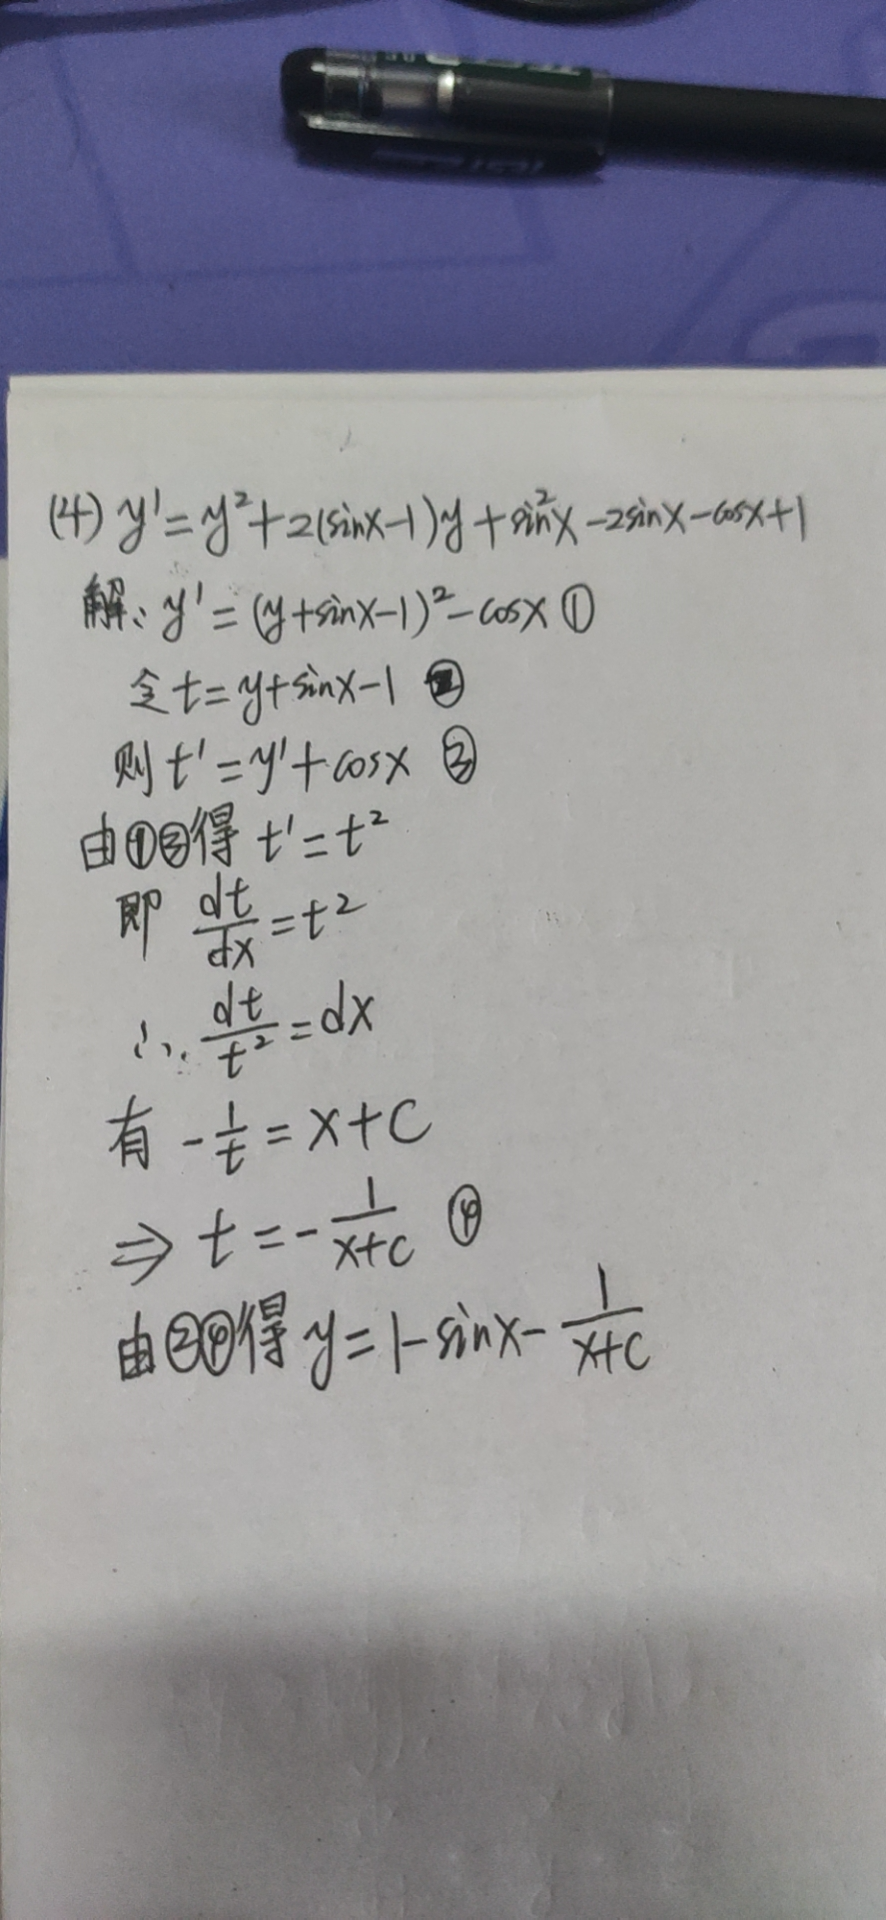 (4) y'=y²+2(sinx-1)y+sin²x-2sinx-cosx+1
解: y'=(y+sinx-1)²-cosx ①
令t=y+sinx-1 ②
则t'=y'+cosx ③
由①③得 t'=t²
即 dt/dx=t²
∴ dt/t²=dx
有 -1/t=x+C
⇒ t=-1/(x+C) ④
由②④得y=1-sinx-1/(x+C)